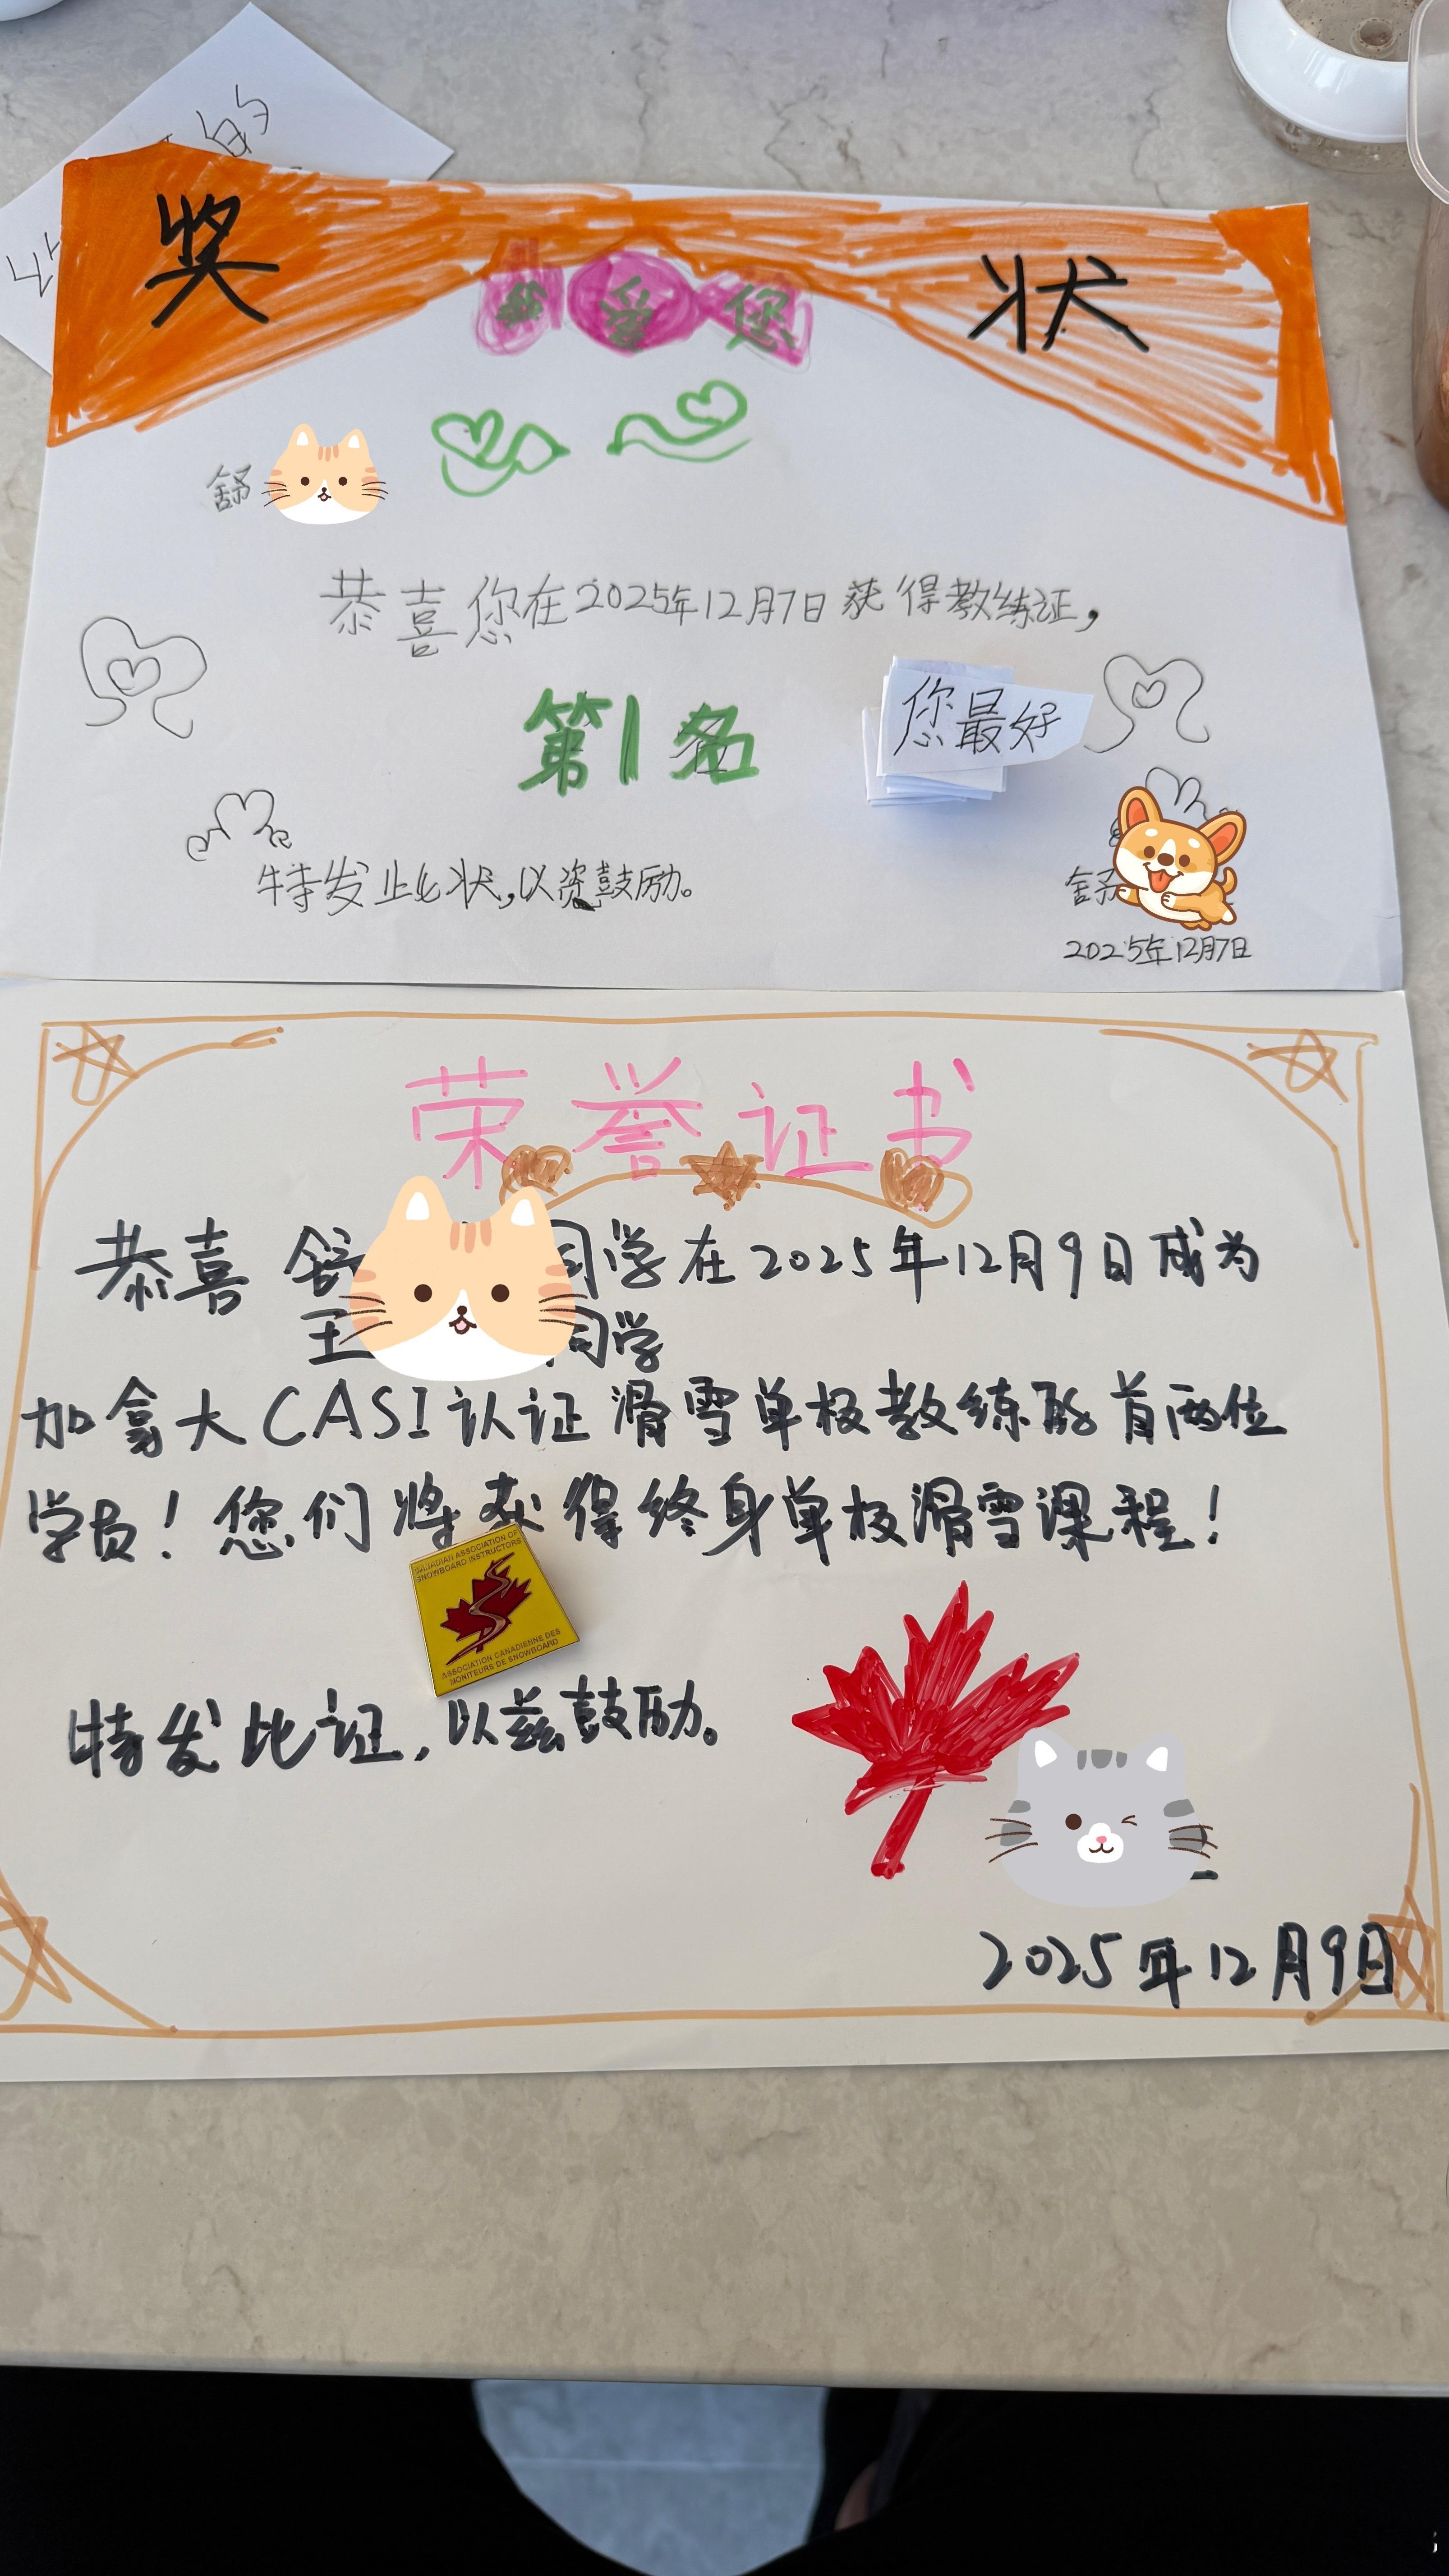 的
奖 状
我爱您
舒
恭喜您在2025年12月7日获得教练证,
第1名
您最好
特发止匕状,以资鼓励。
舒
2025年12月7日
荣誉证书
恭喜 舒 同学在2025年12月9日成为
王 同学
加拿大CASI认证滑雪单板教练的首两位
学员!您们将获得终身单板滑雪课程!
CANADIAN ASSOCIATION OF
SNOWBOARD INSTRUCTORS
ASSOCIATION CANADIENNE DES
MONITEURS DE SNOWBOARD
特发此证,以兹鼓励。
2025年12月9日